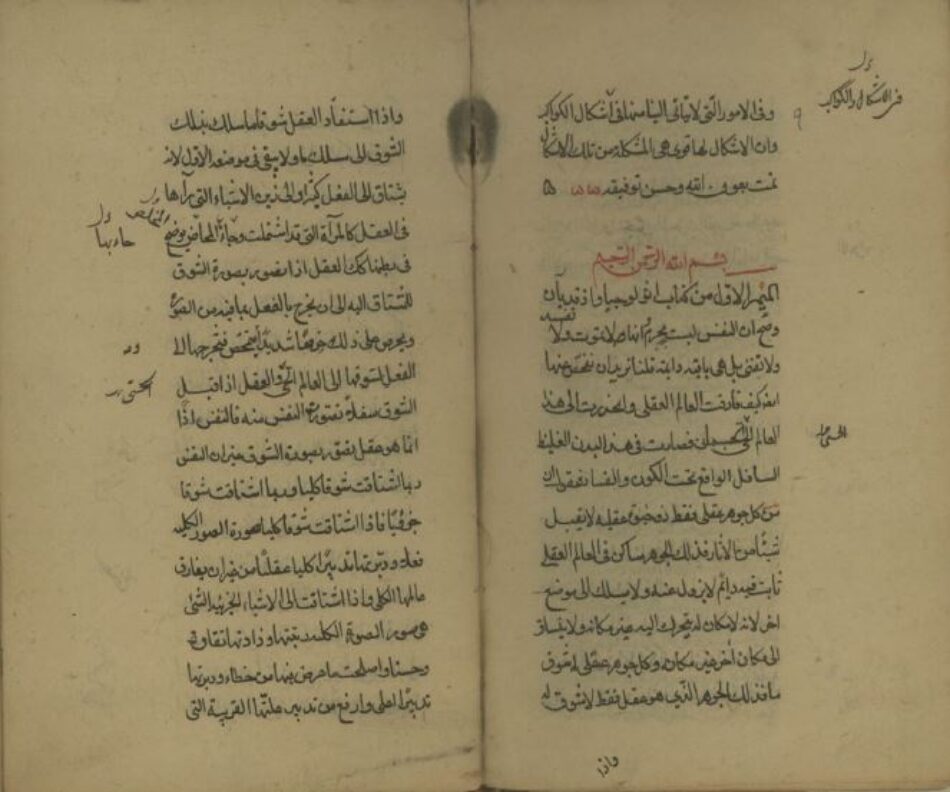 وفي الامور التي لا تأتي الينا سما في أشكال الكواكب
وان الاشكال لها قوى هي المشكلة من تلك الاشكال
تمت بعون الله وحسن توفيقه
بسم الله الرحمن الرحيم
الميمر الاول من كتاب اثولوجيا واذ قد بان
وصح ان النفس ليست بجرم وانها لا تموت ولا تفسد
ولا تفنى بل هي باقية دائمة فلنا نريد ان نفحص عنها
ايضا كيف فارقت العالم العقلي وانحدرت الى هذا
العالم الحسي فصارت في هذا البدن الغليظ
السافل الواقع تحت الكون والفساد فنقول ان
كل جوهر عقلي فقط ذو حيوة عقلية لا يقبل
شيئا من الاثار فذلك الجوهر ساكن في العالم العقلي
ثابت فيه دائم لا يزول عنه ولا يسلك الى موضع
اخر لانه لا مكان له يتحرك اليه غير مكانه ولا يشتاق
الى مكان اخر غير مكانه وكل جوهر عقلي له شوق
ما فذلك الجوهر الذي هو عقل فقط لا شوق له
واذا
في الاشكال والكواكب
واذا استفاد العقل شوقا ما سلك بذلك
الشوق الى مسلك ما ولا يبقى في موضعه الاول لانه
يشتاق الى الفعل كثيرا والى زين الاشياء التي رآها
في العقل كالمرأة التي قد اشتملت وجاءها المخاض بوضع
ما في بطنها كك العقل اذا تصور بصورة الشوق
للمشتاق اليه الى ان يخرج بالفعل بما فيه من الصورة
ويحرص على ذلك حرصا شديدا ويتمخض فيخرجها الى
الفعل لشوقها الى العالم الحسي والعقل اذا قبل
الشوق سفلا تصورت النفس منه فالنفس اذا
انما هو عقل تصور بصورة الشوق غير ان النفس
ربما اشتاقت شوقا كليا وربما اشتاقت شوقا
جزئيا فاذا اشتاقت شوقا كليا صورة الصور الكلية
فعلا ودبرتها تدبيرا كليا عقليا من غير ان يفارق
عالمها الكلي واذا اشتاقت الى الاشياء الجزئية التي
هي صور لصورة الكلية زينتها وزادتها نقاوة
وحسنا واصلحت ما عرض فيها من خطاء ودبرتها
تدبيرا اعلى وارفع من تدبير علتها القريبة التي